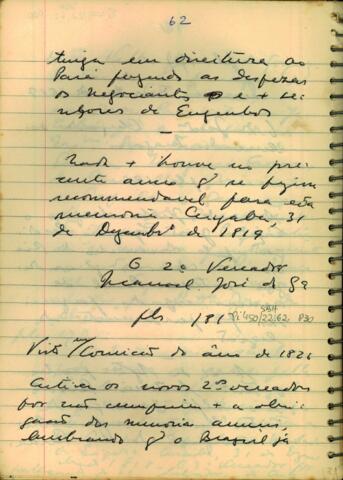 62
tinga em direitura ao
Pará fazendo as despezas
os negociantes e + se-
nhores de Engenhos
—
Nada + houve no pre-
sente anno q se fizesse
recommendavel para esta
memoria Cuyabá, 31
de Dezembro de 1819
O 2º Vereador
Manoel José de Sá
fls 181
SBH
Pi 450/22/62 P30
Visto em Correição do ano de 1821
aos novos 2os vereadores
por não cumprirem + a obri-
gação das memorias annuaes,
lembrando q o Brazil já